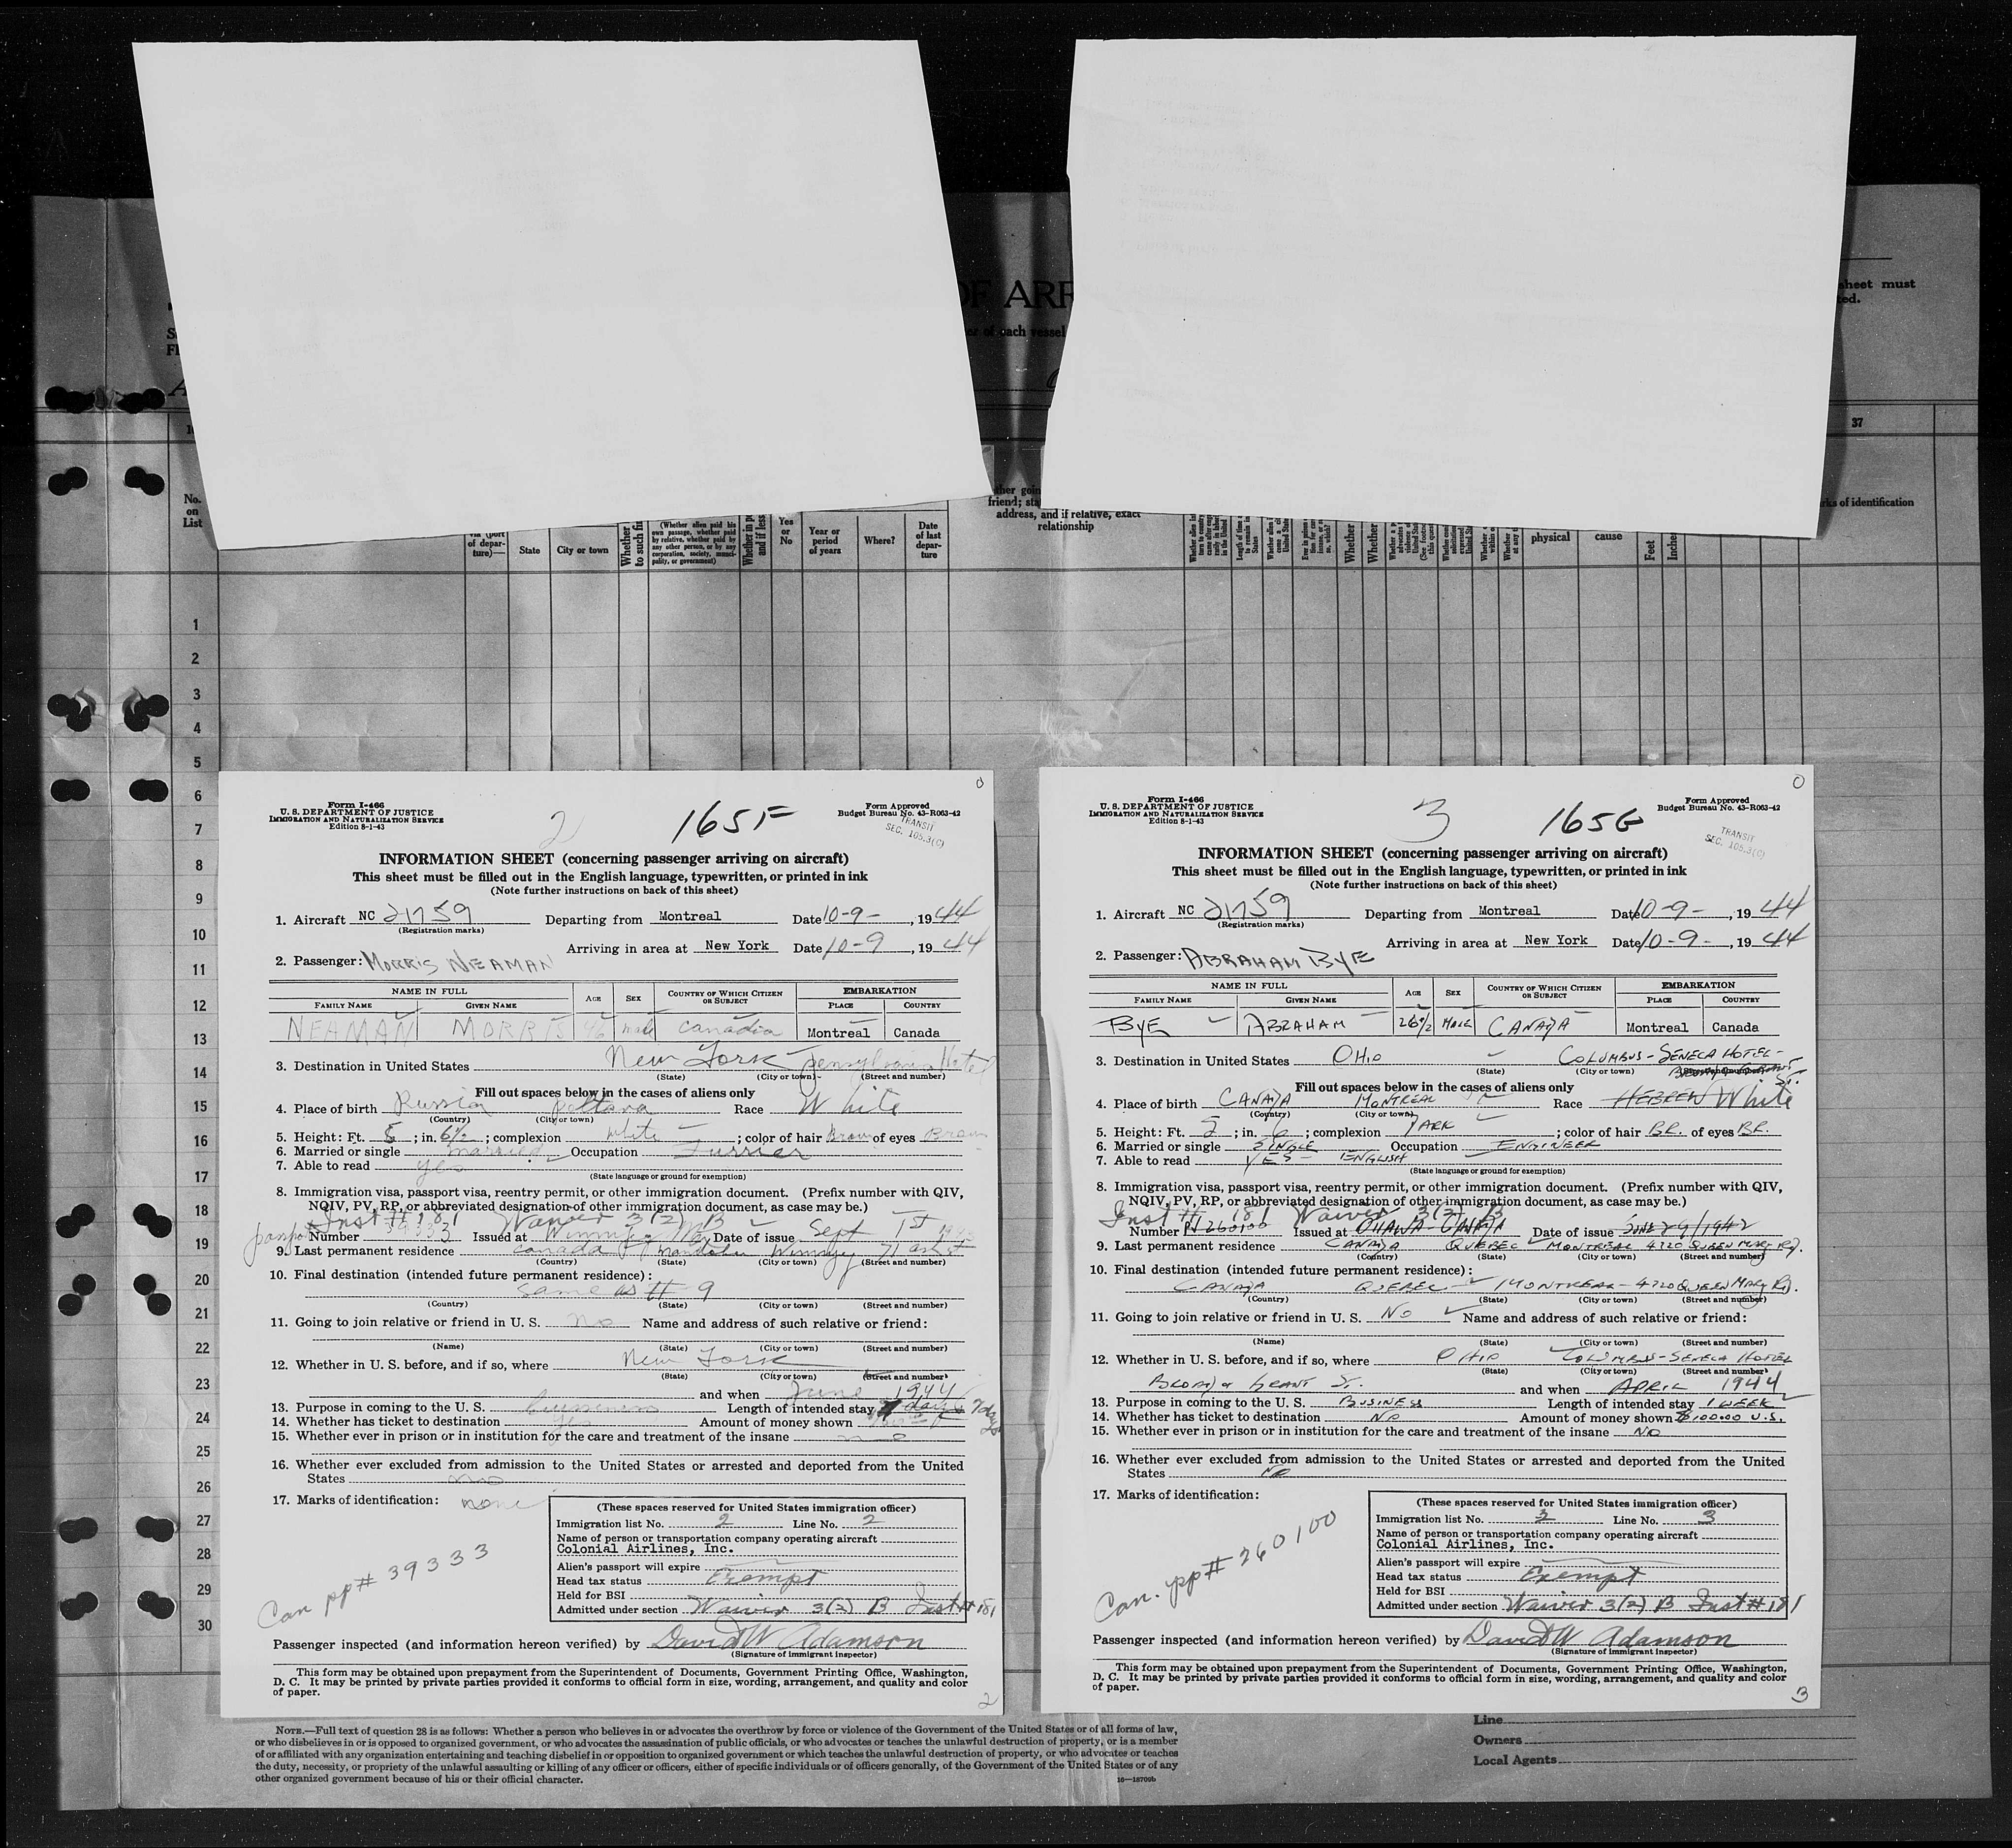 OF ARR
sheet must
ted.
er of each vessel
37
No.
on
List
(port
of depar-
ture)—
State
City or town
Whether
to such fi
(Whether alien paid his
own passage, whether paid
by relative, whether paid
by any other person, or by any
corporation, society, munici-
pality, or government)
Whether in p
and if less
Yes
or
No
Year or
period
of years
Where?
Date
of last
depar-
ture
ther goin
friend; sta
address, and if relative, exact
relationship
Whether
Whether
physical
cause
Feet
Inches
rks of identification
1
2
3
4
5
6
7
8
9
10
11
12
13
14
15
16
17
18
19
20
21
22
23
24
25
26
27
28
29
30
0
Form I-466
U. S. DEPARTMENT OF JUSTICE
IMMIGRATION AND NATURALIZATION SERVICE
Edition 8-1-43
2
165F
Form Approved
Budget Bureau No. 43-R063-42
TRANSIT
SEC. 105.3(C)
INFORMATION SHEET (concerning passenger arriving on aircraft)
This sheet must be filled out in the English language, typewritten, or printed in ink
(Note further instructions on back of this sheet)
1. Aircraft NC 21759 Departing from Montreal Date 10-9-, 1944
(Registration marks)
Arriving in area at New York Date 10-9, 1944
2. Passenger: MORRIS NEAMAN
NAME IN FULL AGE SEX COUNTRY OF WHICH CITIZEN OR SUBJECT EMBARKATION
FAMILY NAME GIVEN NAME PLACE COUNTRY
NEAMAN MORRIS 46 male Canadia Montreal Canada
3. Destination in United States New York Pensylvania Hotel
(State) (City or town) (Street and number)
Fill out spaces below in the cases of aliens only
4. Place of birth Russia Poltava Race White
(Country) (City or town)
5. Height: Ft. 5; in. 6½; complexion white; color of hair Brown of eyes Brown
6. Married or single married Occupation Furrier
7. Able to read yes
(State language or ground for exemption)
8. Immigration visa, passport visa, reentry permit, or other immigration document. (Prefix number with QIV,
NQIV, PV, RP, or abbreviated designation of other immigration document, as case may be.)
Inst # 181 Waiver 3(2) B
Number 39333 Issued at Winnipeg Date of issue Sept 1st
9. Last permanent residence Canada Winnipeg
(Country) (State) (City or town) (Street and number)
10. Final destination (intended future permanent residence):
Same as # 9
(Country) (State) (City or town) (Street and number)
11. Going to join relative or friend in U. S. no Name and address of such relative or friend:
(Name) (State) (City or town) (Street and number)
12. Whether in U. S. before, and if so, where New York
(State) (City or town) (Street and number)
and when June 1944
13. Purpose in coming to the U. S. bussiness Length of intended stay 7 days
14. Whether has ticket to destination yes Amount of money shown
15. Whether ever in prison or in institution for the care and treatment of the insane no
16. Whether ever excluded from admission to the United States or arrested and deported from the United
States no
17. Marks of identification: none
(These spaces reserved for United States immigration officer)
Immigration list No. 2 Line No. 2
Name of person or transportation company operating aircraft
Colonial Airlines, Inc.
Alien's passport will expire
Head tax status Exempt
Held for BSI
Admitted under section Waiver 3(2) B Inst # 181
Can pp# 39333
Passenger inspected (and information hereon verified) by David W Adamson
(Signature of immigrant inspector)
This form may be obtained upon prepayment from the Superintendent of Documents, Government Printing Office, Washington,
D. C. It may be printed by private parties provided it conforms to official form in size, wording, arrangement, and quality and color
of paper.
2
0
Form I-466
U. S. DEPARTMENT OF JUSTICE
IMMIGRATION AND NATURALIZATION SERVICE
Edition 8-1-43
3
165G
Form Approved
Budget Bureau No. 43-R063-42
TRANSIT
SEC. 105.3(C)
INFORMATION SHEET (concerning passenger arriving on aircraft)
This sheet must be filled out in the English language, typewritten, or printed in ink
(Note further instructions on back of this sheet)
1. Aircraft NC 21759 Departing from Montreal Date 10-9-, 1944
(Registration marks)
Arriving in area at New York Date 10-9-, 1944
2. Passenger: ABRAHAM BYE
NAME IN FULL AGE SEX COUNTRY OF WHICH CITIZEN OR SUBJECT EMBARKATION
FAMILY NAME GIVEN NAME PLACE COUNTRY
BYE ABRAHAM 26½ MALE CANADA Montreal Canada
3. Destination in United States OHIO COLUMBUS-SENECA HOTEL-
(State) (City or town) (Street and number)
ST.
Fill out spaces below in the cases of aliens only
4. Place of birth CANADA MONTREAL Race HEBREW White
(Country) (City or town)
5. Height: Ft. 5; in. 6; complexion DARK; color of hair BR. of eyes BR.
6. Married or single SINGLE Occupation ENGINEER
7. Able to read YES - ENGLISH
(State language or ground for exemption)
8. Immigration visa, passport visa, reentry permit, or other immigration document. (Prefix number with QIV,
NQIV, PV, RP, or abbreviated designation of other immigration document, as case may be.)
Inst # 181 Waiver 3(2) B
Number 260100 Issued at OTTAWA-CANADA Date of issue JUNE 29/1942
9. Last permanent residence CANADA QUEBEC MONTREAL 4720 QUEEN MARY RD.
(Country) (State) (City or town) (Street and number)
10. Final destination (intended future permanent residence):
CANADA QUEBEC - MONTREAL - 4720 QUEEN MARY RD.
(Country) (State) (City or town) (Street and number)
11. Going to join relative or friend in U. S. NO Name and address of such relative or friend:
(Name) (State) (City or town) (Street and number)
12. Whether in U. S. before, and if so, where OHIO COLUMBUS-SENECA HOTEL
(State) (City or town) (Street and number)
BROAD & GRANT ST. and when APRIL 1944
13. Purpose in coming to the U. S. BUSINESS Length of intended stay 1 WEEK
14. Whether has ticket to destination NO Amount of money shown $100.00 U.S.
15. Whether ever in prison or in institution for the care and treatment of the insane NO
16. Whether ever excluded from admission to the United States or arrested and deported from the United
States NO
17. Marks of identification:
(These spaces reserved for United States immigration officer)
Immigration list No. 2 Line No. 3
Name of person or transportation company operating aircraft
Colonial Airlines, Inc.
Alien's passport will expire
Head tax status Exempt
Held for BSI
Admitted under section Waiver 3(2) B Inst # 181
Can. pp# 260100
Passenger inspected (and information hereon verified) by David W Adamson
(Signature of immigrant inspector)
This form may be obtained upon prepayment from the Superintendent of Documents, Government Printing Office, Washington,
D. C. It may be printed by private parties provided it conforms to official form in size, wording, arrangement, and quality and color
of paper.
3
NOTE.—Full text of question 28 is as follows: Whether a person who believes in or advocates the overthrow by force or violence of the Government of the United States or of all forms of law,
or who disbelieves in or is opposed to organized government, or who advocates the assassination of public officials, or who advocates or teaches the unlawful destruction of property, or is a member
of or affiliated with any organization entertaining and teaching disbelief in or opposition to organized government or which teaches the unlawful destruction of property, or who advocates or teaches
the duty, necessity, or propriety of the unlawful assaulting or killing of any officer or officers, either of specific individuals or of officers generally, of the Government of the United States or of any
other organized government because of his or their official character.
16—18709b
Line
Owners
Local Agents